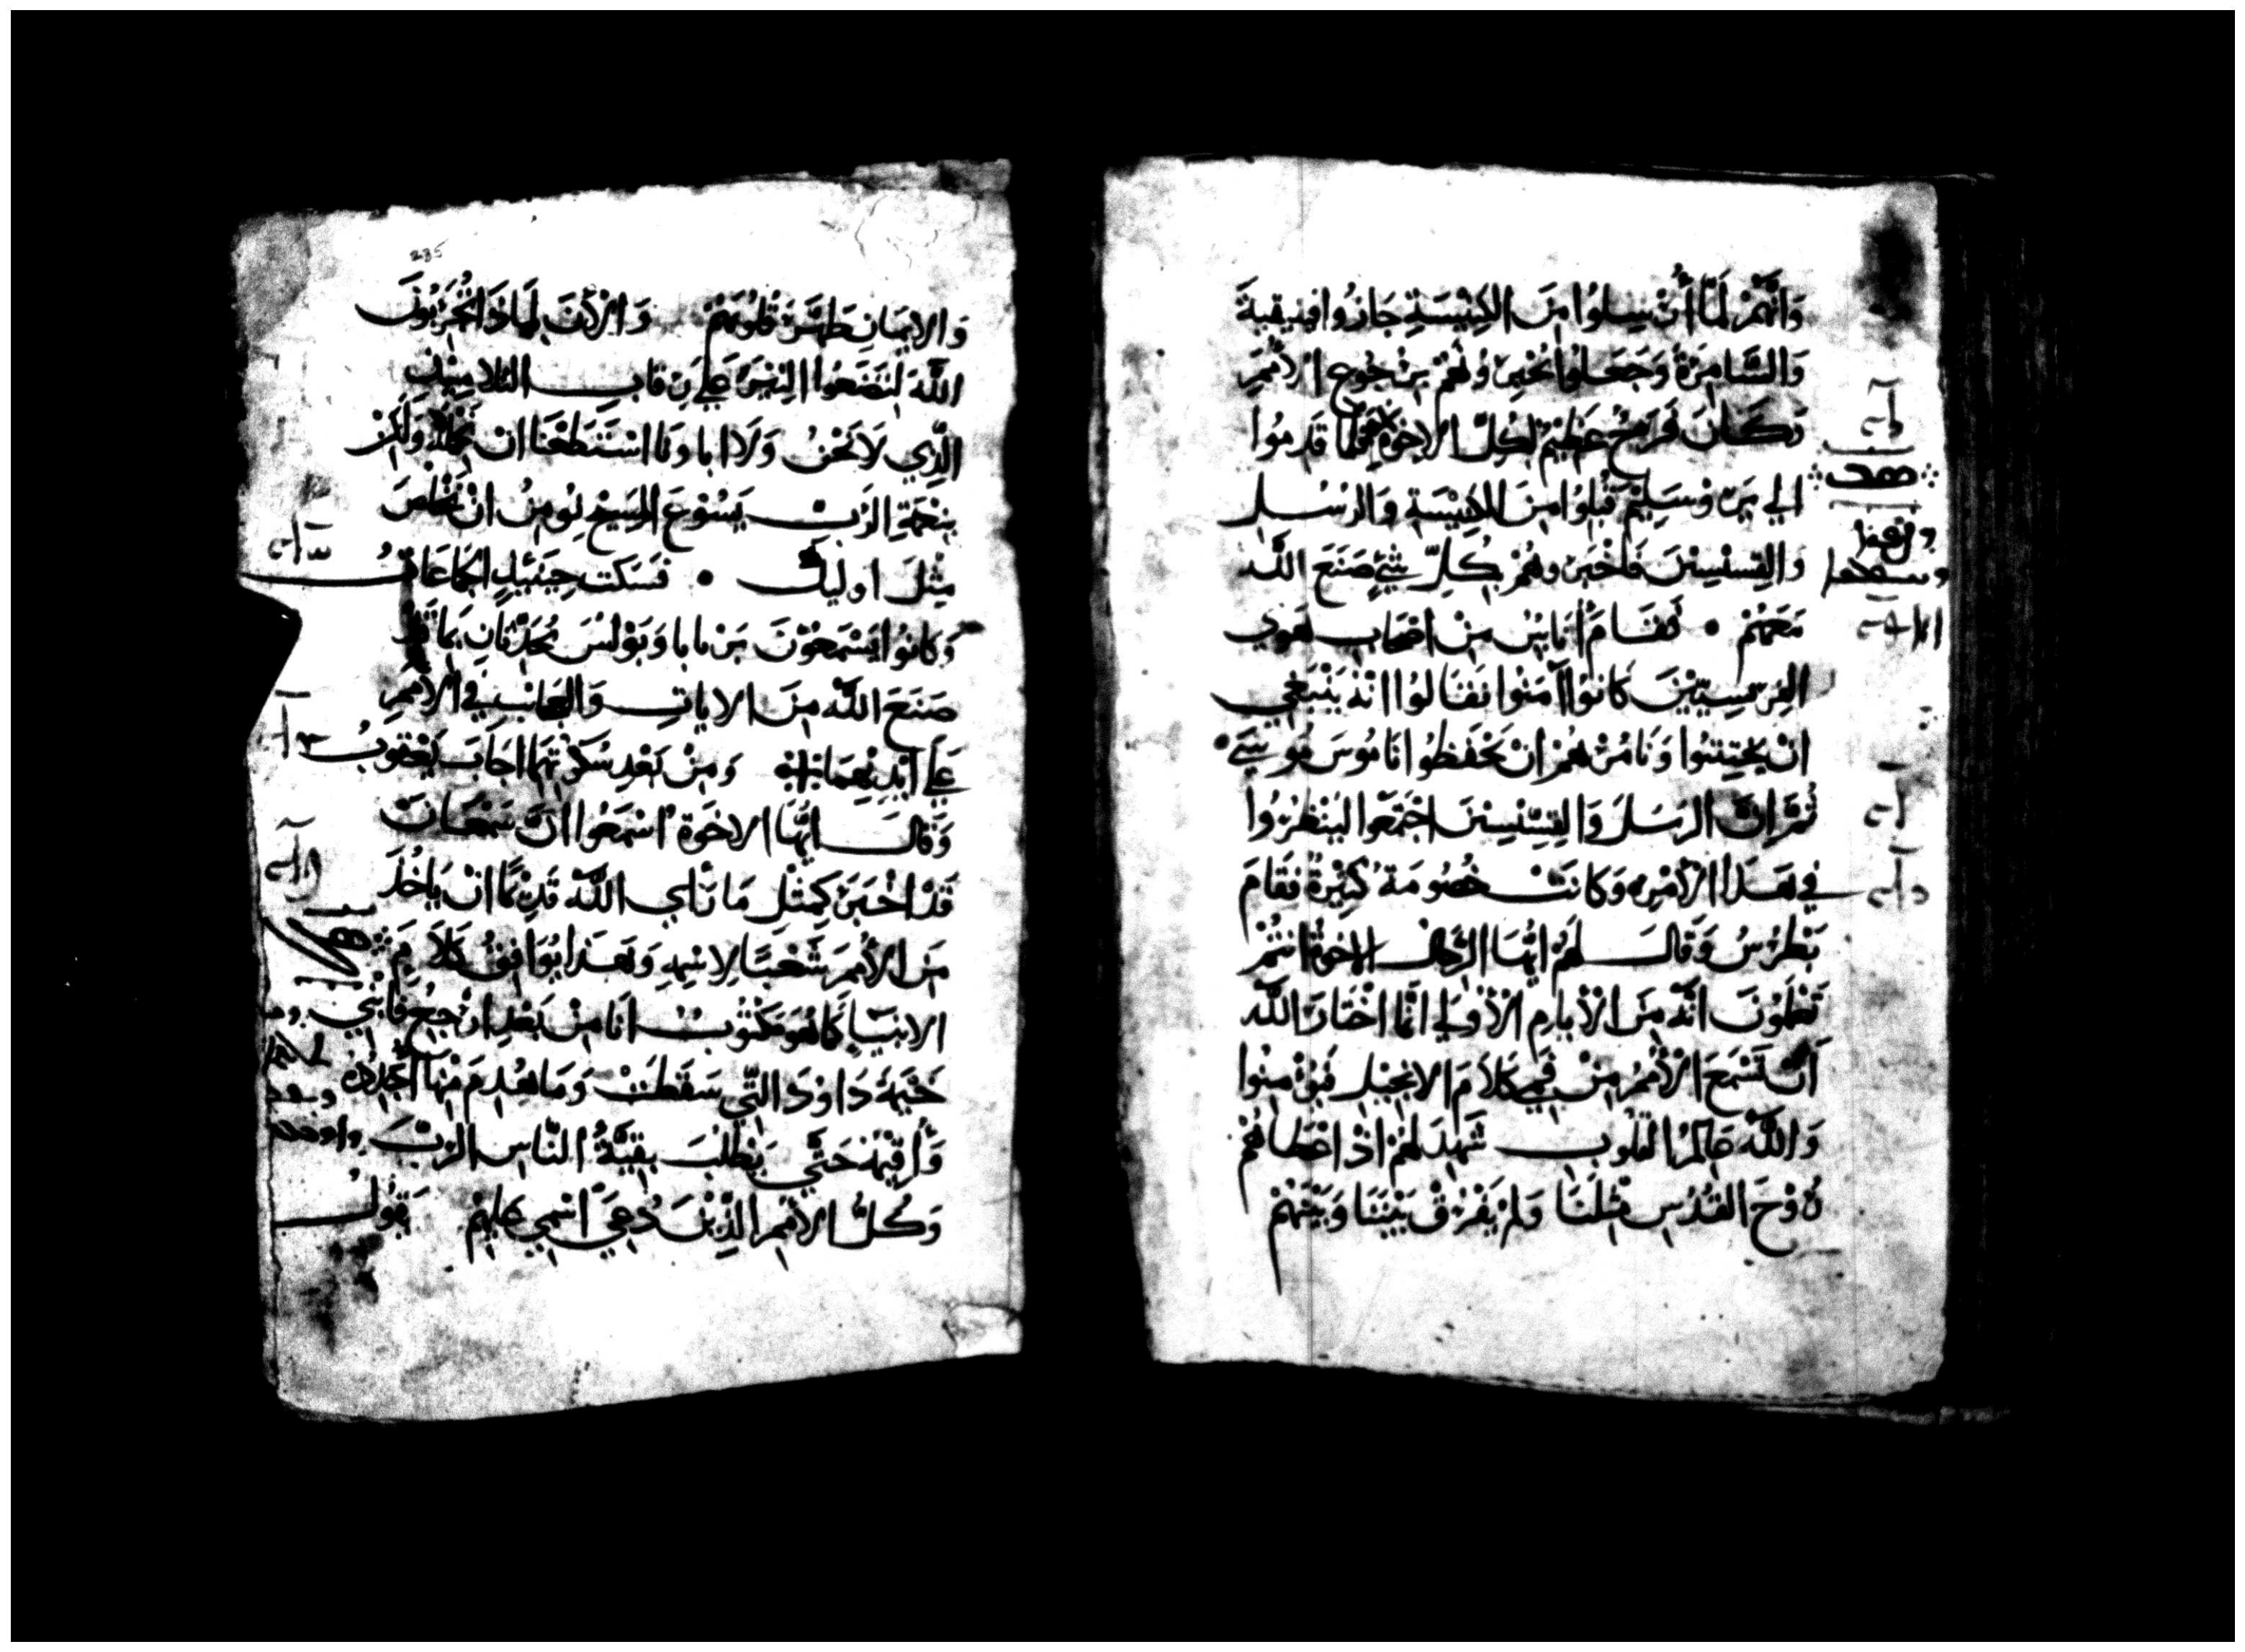 وَانَّهُمْ لَمَّا أُرْسِلوُا مِنَ الكِنِيْسَةِ جَازُوا فِينِيقِيةَ
وَالسَّامِرَةَ وَجَعَلوُا يُخْبِرُونَهُمْ برُجُوع الأُمَمِ
وَكَانَ فَرَحٌ عَظِيْمٌ لِكُلِّ الاِخْوَةِ فَلَمَّا قَدِمُوا
الي يَرُوْسَلِيْمَ قُبِلُوْا مِنَ الكِنِيْسَةِ وَالرُسُلِ
وَالقِسِّيسِيْنَ فَاخْبَرُوهُمْ بِكُلِّ شَيْءٍ صَنَعَ اللَّه
مَعَهُمْ • فَقَامَ أُنَاسٌ مِنْ اصْحَابِ هَوي
الفِرِّيسِيِّيْنَ كَانوُا آمَنُوا فَقَالوُا انْهُ يَنْبَغِي
انْ يَخْتِتنُوا وَنَامُرْهُمْ انْ يَحْفَظُوا نَامُوْسَ مُوسَيْ
ثُمَّ انَّ الرُسُلَ وَالقِسِّيْسِيْنَ اجْتَمَعُوا لِيَنْظُرُوا
فِي هَذَا الأَمْرِ وَكَانَتْ خُصُومَةٌ كَثِيْرَةٌ فَقَامَ
بُطْرُسُ وَقَالَ لَهُمْ ايُّهَا الرِّجَالُ الاِخْوَةُ انْتُمْ
تَعْلَمُوْنَ انَّهُ مِنَ الأيَامِ الأُوْلَي انَّمَا اخْتَارَ اللَّه
أَنْ تَسْمَعَ الأُمَمُ مِنْ فَمِي كَلاَمَ الانْجِيْلِ فَيُؤْمِنُوا
وَاللَّه عَالِمُ القُلُوْبِ شَهِدَ لَهُمْ اذْ اعْطَاهُمْ
رُوْحَ القُدُسِ مِثْلَنَا وَلَمْ يَفْرُقْ بَيْنَنَا وَبَيْنَهُمْ
235
وَالايْمَانِ طَهَّرَ قُلُوبَهُمْ وَالأَنَ لِمَاذَا تُجَرِّبُوْنَ
اللَّهَ لِتَضَعُوا النِيْرَ عَلَيْ رِقَابِ التَلامِيْذِ
الَّذِي لاَ نَحْنُ وَلاَ ابَاونَا اسْتَطَعْنَا انْ نَحْمِلَهُ وَلَكِنْ
بِنِعْمَةِ الرَّبِّ يَسُوْعَ المَسِيْحِ نُومِنُ انْ نَخْلُصَ
مِثْلَ اوليِكَ • فَسَكَتَ حِيْنَيِذٍ الجَمَاعَاتُ
وَكَانوُا يَسْمَعُوْنَ بَرْنَابَا وَبَوْلُسَ يُحَدِّثَانِ بِمَا قَدْ
صَنَعَ اللَّه مِنَ الاَياتِ وَالعَجَايبِ فِي الأُمَمِ
عَلي ايْدِيْهِمَا وَمِنْ بَعْدِ سُكُوْتِهِمَا اجَابَ يَعْقوُبُ
وَقَالَ ايُّهَا الاِخْوَةُ اسْمَعُوا انَّ سَمْعَانَ
قَدْ اخْبَرَ كَمِثْلِ مَا رَأي اللَّه قَدِيْمًا انْ يَاخُذَ
مِنَ الأُمَمِ شَعْبًا لاِسْمِهِ وَهَذَا يُوَافِقُ كَلاَمَ
الانْبِيَاءِ كَمَا هُوَ مَكْتُوْبٌ انَا مِنْ بَعْدِ ارْجِعُ فَابْنِي
خَيْمَةَ دَاوْدَ الَّتِي سَقَطَتْ وَمَا هُدِمَ مِنْهَا اُجَدِّدُهُ
وَأُقِيْمُهُ حَتَّي يَطْلُبَ بَقِيَّةُ النَّاسِ الرَّبَّ
وَكُلُّ الأُمَمِ الذِّيْنَ دُعِيَ اسْمِي عَلَيْهِمْ يَقُولُ